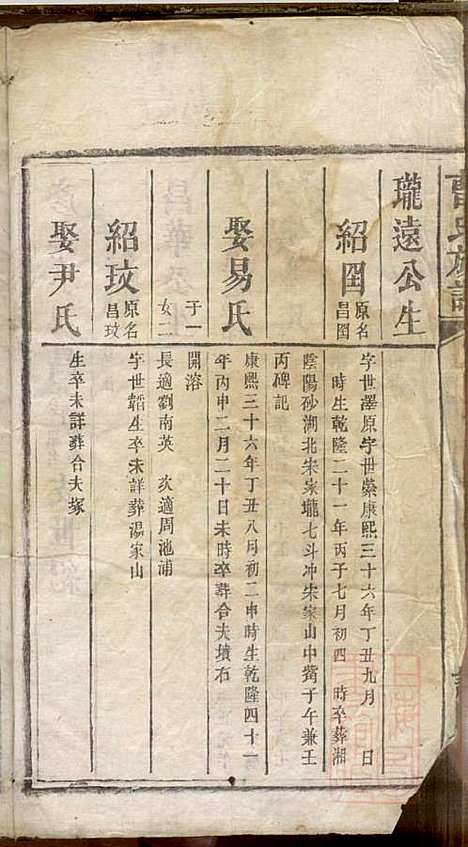 曹氏族譜
瓏遠公生
紹囶
原名
昌囶
字世澤原字世縈康熙三十六年丁丑九月 日
時生乾隆二十一年丙子七月初四 時卒葬湘
陰陽砂湖北宋家壠七斗冲朱家山中嘴子午兼壬
丙碑記
娶易氏
康熙三十六年丁丑八月初二申時生乾隆四十一
年丙申二月二十日未時卒葬合夫墳右
子一
開溶
女二
長適劉南英 次適周池浦
紹玟
原名
昌玟
字世韜生卒未詳葬湯家山
娶尹氏
生卒未詳葬合夫塚